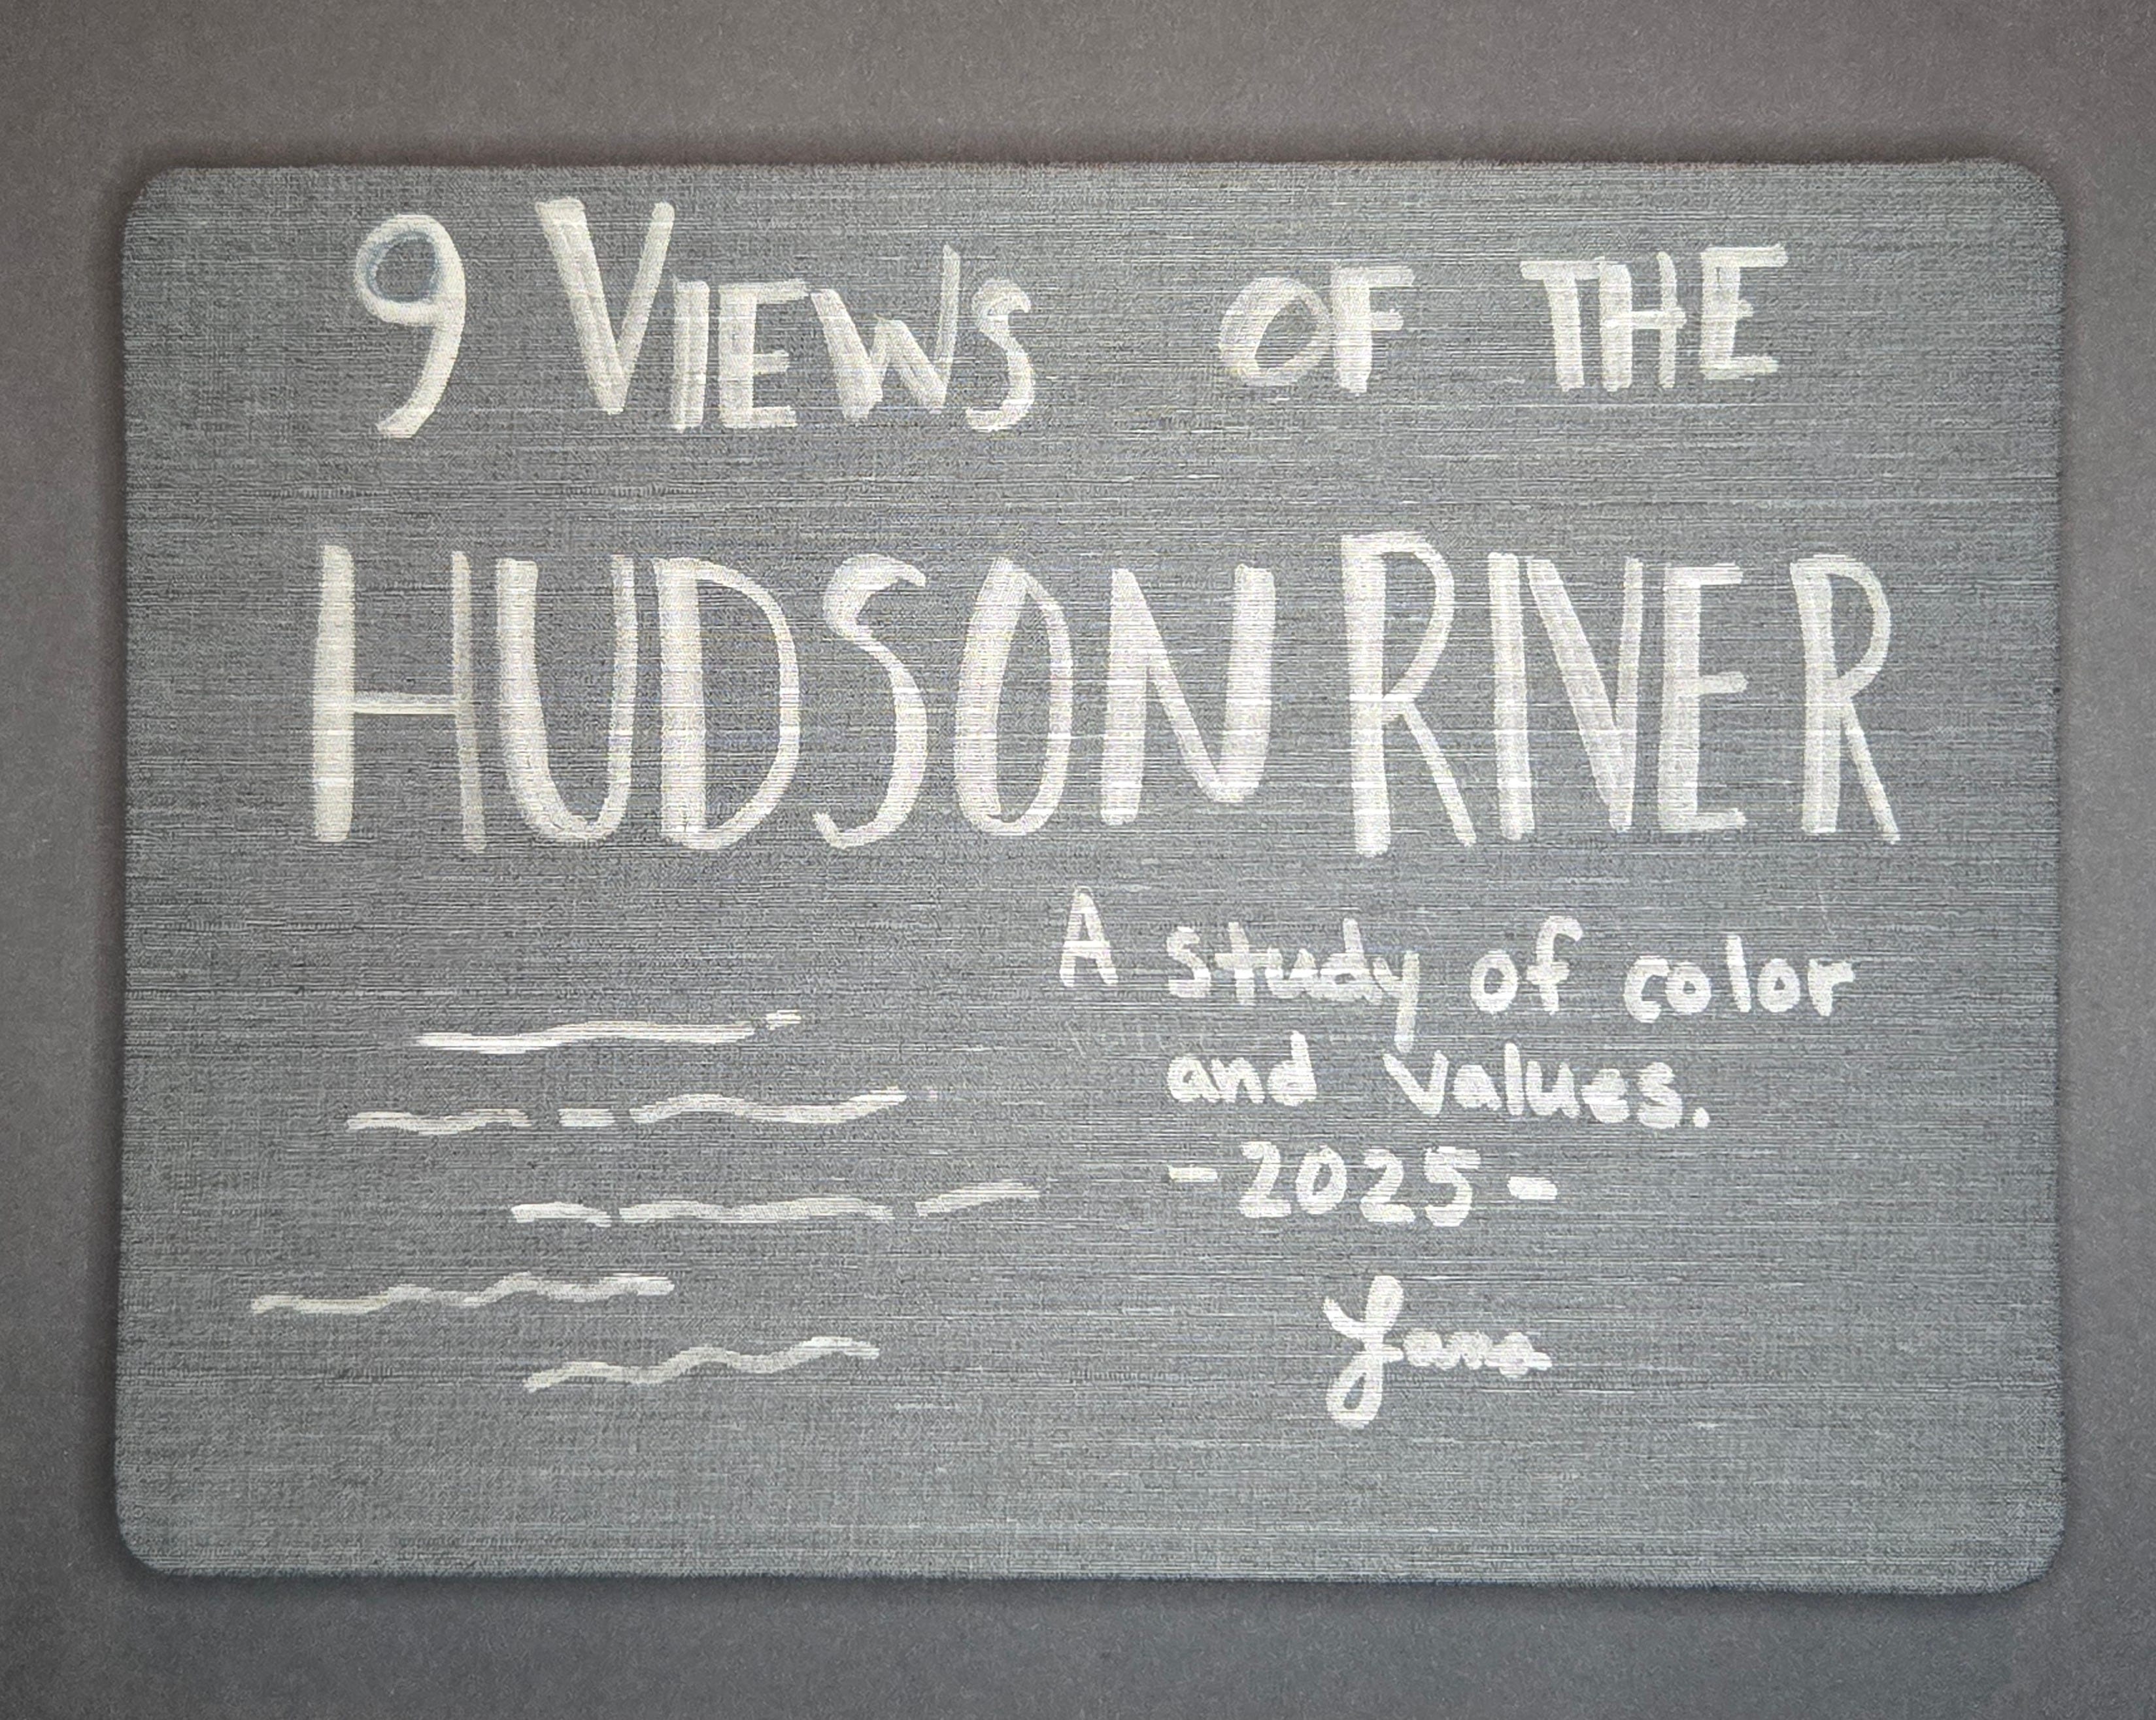 9 VIEWS OF THE
HUDSON RIVER
A study of color
and values.
-2025-